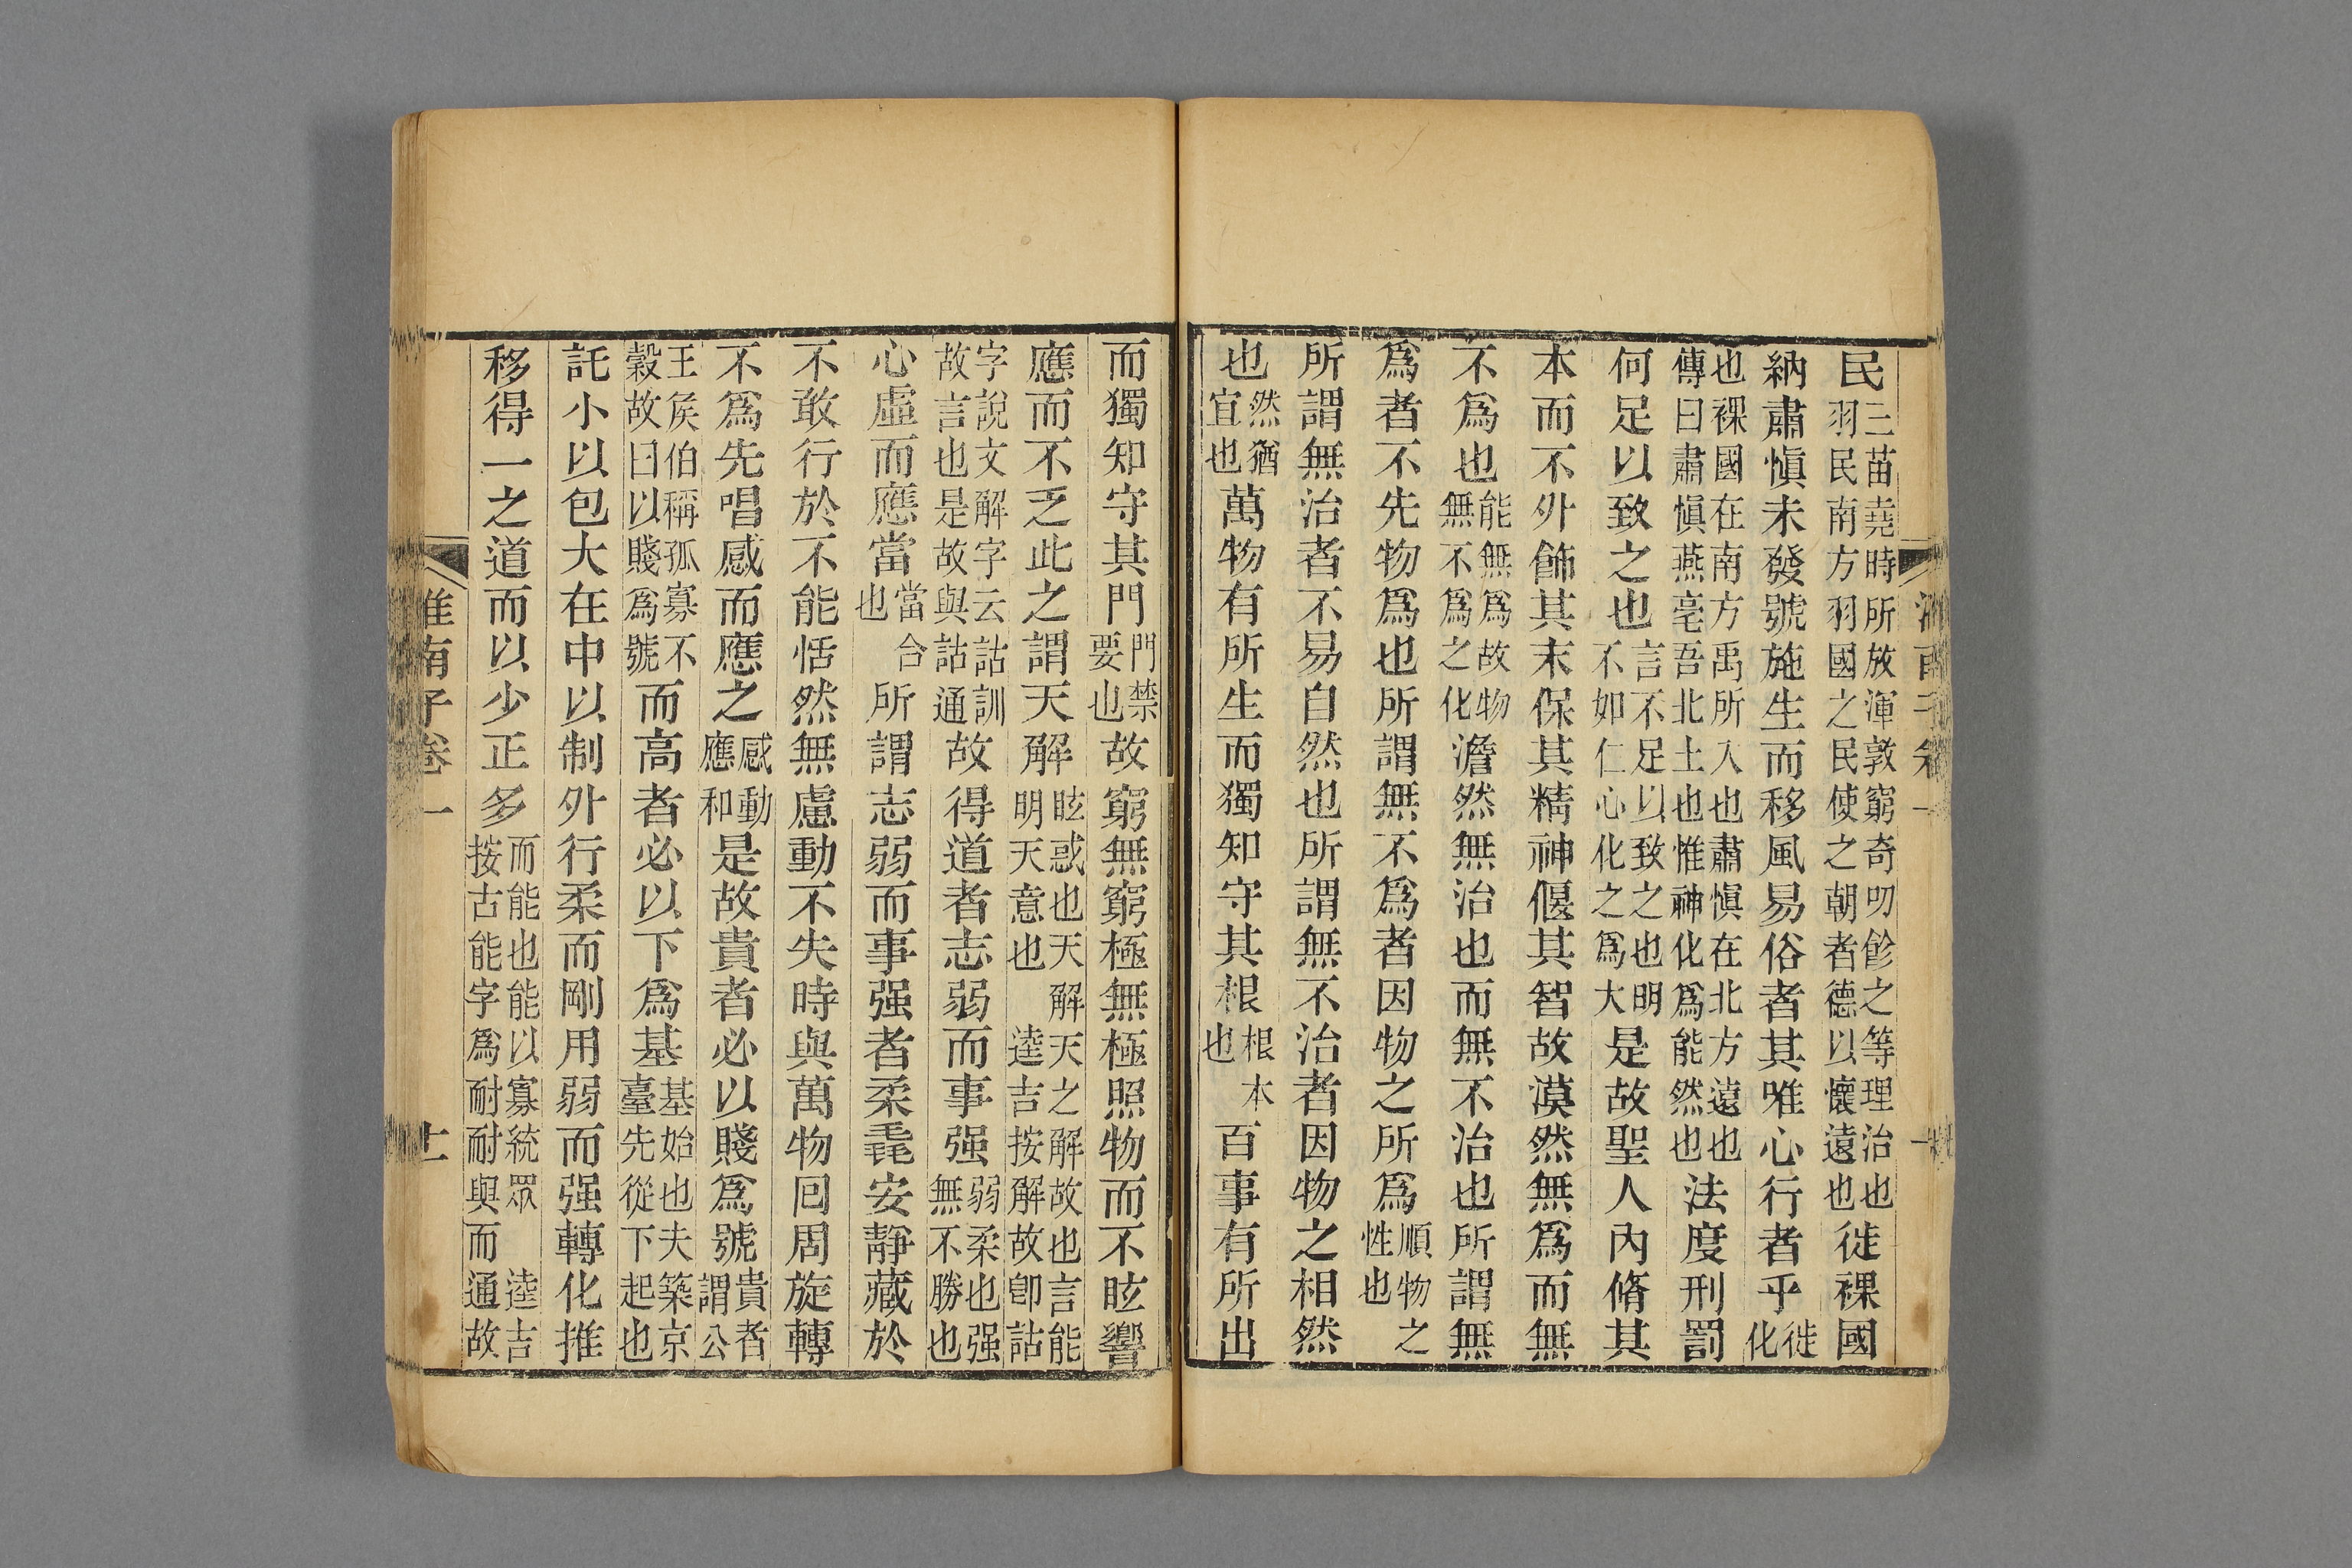 民三苗堯時所放渾敦窮奇叨飻之等理治也羽民南方羽國之民使之朝者德以懷遠也徙裸國
納肅愼未發號施生而移風易俗者其唯心行者乎徙化
也裸國在南方禹所入也肅愼在北方遠也傳曰肅愼燕亳吾北土也惟神化爲能然也法度刑罰
何足以致之也言不足以致之也明不如仁心化之爲大是故聖人內脩其
本而不外飾其末保其精神偃其智故漠然無爲而無
不爲也能無爲故物無不爲之化澹然無治也而無不治也所謂無
爲者不先物爲也所謂無不爲者因物之所爲順物之性也
所謂無治者不易自然也所謂無不治者因物之相然
也然猶宜也萬物有所生而獨知守其根根本也百事有所出
而獨知守其門門禁要也故窮無窮極無極照物而不眩響
應而不乏此之謂天解眩惑也天解天之解故也言能明天意也逵吉按解故卽詁
字說文解字云詁訓故言也是故與詁通故得道者志弱而事强弱柔也强無不勝也
心虛而應當當合也所謂志弱而事强者柔毳安靜藏於
不敢行於不能恬然無慮動不失時與萬物回周旋轉
不爲先唱感而應之感動應和是故貴者必以賤爲號貴者謂公
王矦伯稱孤寡不穀故曰以賤爲號而高者必以下爲基基始也夫築京臺先從下起也
託小以包大在中以制外行柔而剛用弱而强轉化推
移得一之道而以少正多而能也能以寡統眾逵吉按古能字爲耐耐與而通故
淮南子卷一
十一